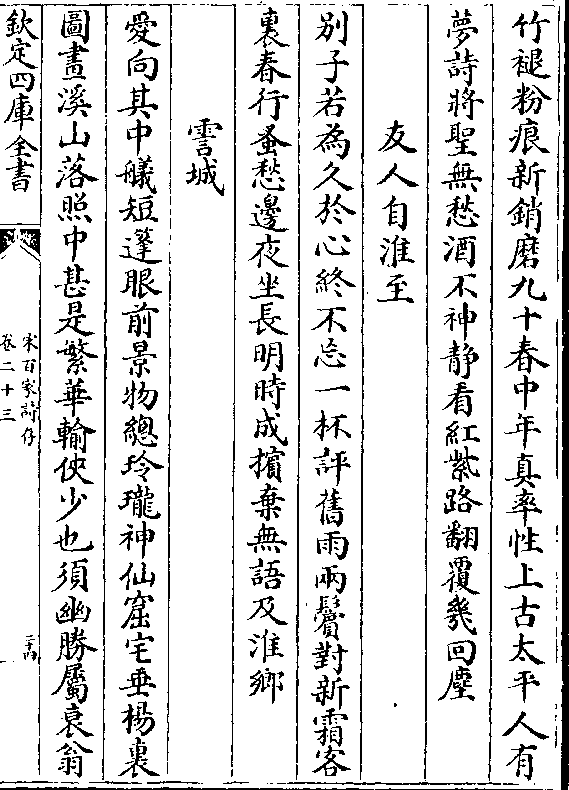 竹褪粉痕新銷磨九十春中年真率性上古太平人有
夢詩將聖無愁酒不神静看紅紫路翻覆幾回塵
友人自淮至
别子若為久於心終不忘一杯評舊雨兩鬢對新霜客
裏春行蚤愁邊夜坐長明時成擯棄無語及淮鄉
霅城
愛向其中艤短篷眼前景物總玲瓏神仙窟宅垂楊裏
圖畫溪山落照中甚是繁華輸俠少也須幽勝屬衰翁
欽定四庫全書
宋百家詩存
卷二十三